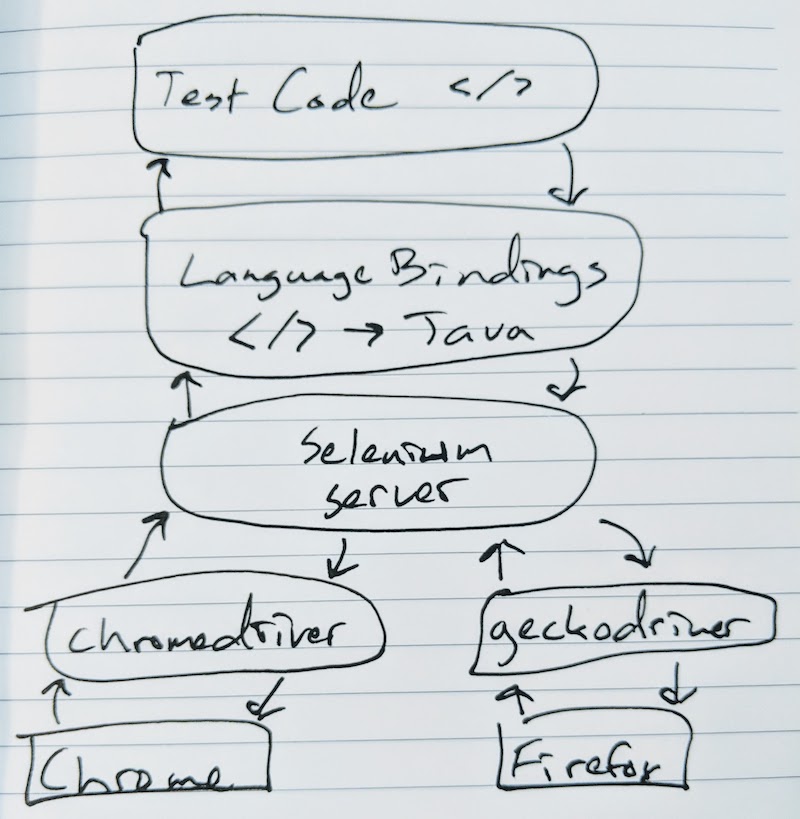 Test Code </>
Language Bindings
</> → Java
Selenium
server
chromedriver
geckodriver
Chrome
Firefox